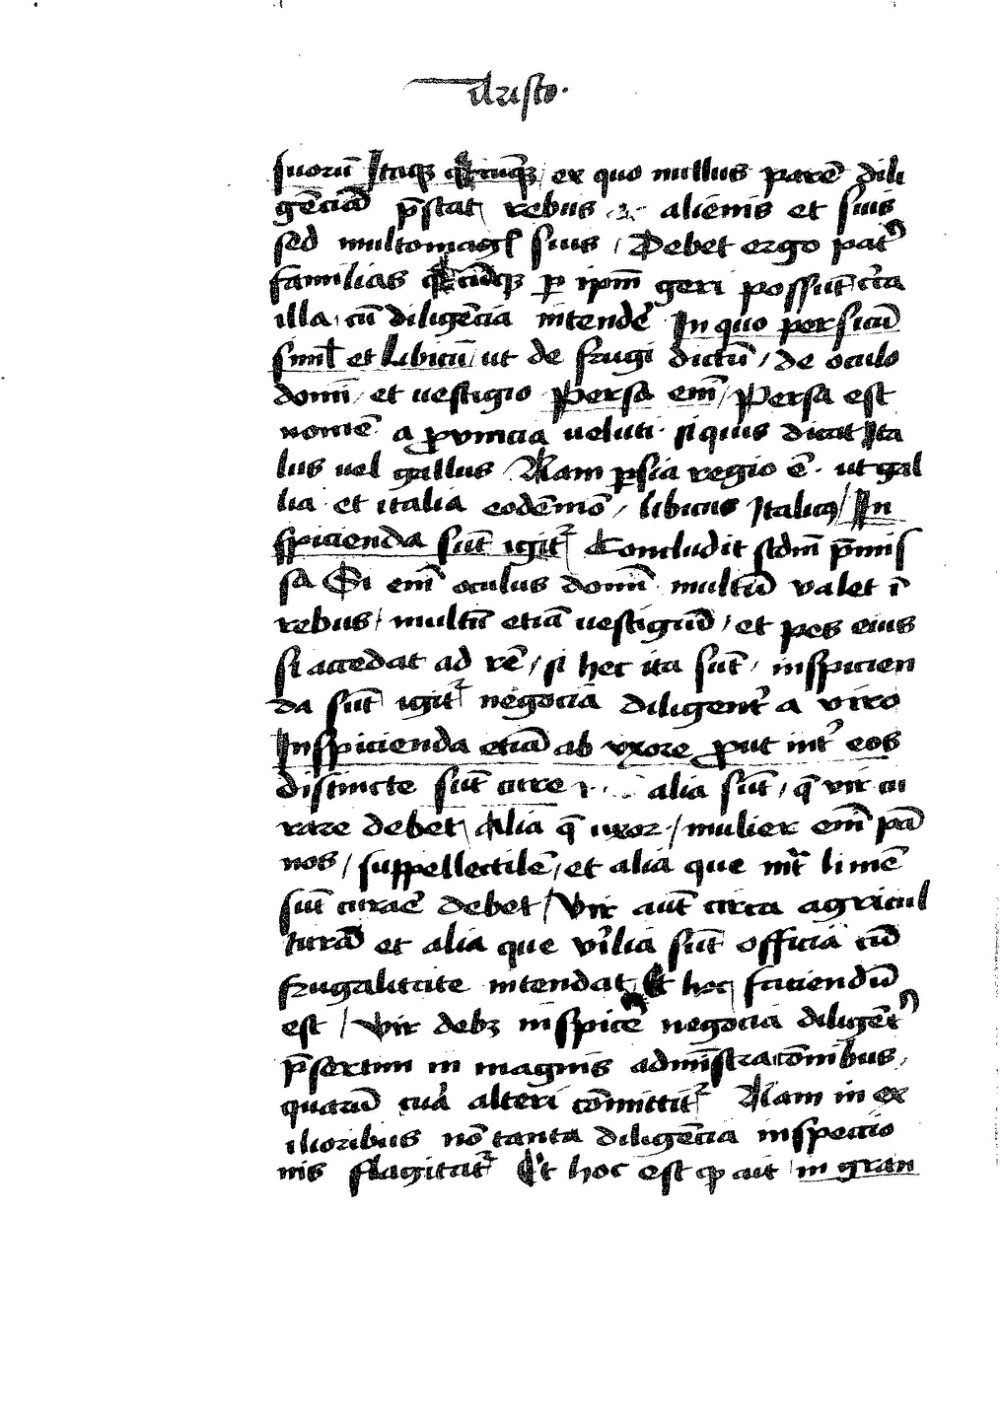 Aristo.
suorū Itaqꝫ ex quo nullus parē dili
gēciā p̄stat rebus alienis et suis
sed multomagꝭ suis / Debet ergo patꝰ
familias ꝑ ipm̄ geri possūt cīta
illa cū diligēcia intendē In quo persicū
simil̄ et Libicū / ut de frugi dictū / de oculo
domī / et uestigio Persa em̄ / Persa est
nomē a ꝓuincia ueluti si quis dicat Ita
lus uel gallus Nam ꝑsia regio ē · ut gal
lia et italia eodēmō / libicus Italicꝰ / In
spicienda sūt igit̉ Concludit scdm̄ p̄mis
sa Si em̄ oculus domī multū valet ī
rebus / multū etiā uestigiū / et pes eius
si accedat ad rē / si hec ita sūt / inspicien
da sūt igit̉ negocia diligent̉ a viro
Inspicienda etiā ab vxore ꝓut int̉ eos
distincte sūt cure alia sūt / q̄ vir cu
rare debet / Alia q̄ uxor / mulier em̄ pā
nos / suppellectilē / et alia que int̉ limē
sūt curare debet / Vir aūt circa agricul
turā et alia que v̉ilia sūt officia cū
frugalitate intendat Et hoc faciendū
est / Vir debꝫ inspicē negocia diligēt̉
p̄sertim in magnis admīstracōnibus /
quarū cura alteri cōmittit̉ Nam in ex
ilioribus nō tanta diligēcia inspectio
nis flagitat̉ Et hoc est ꝙ ait / in gran